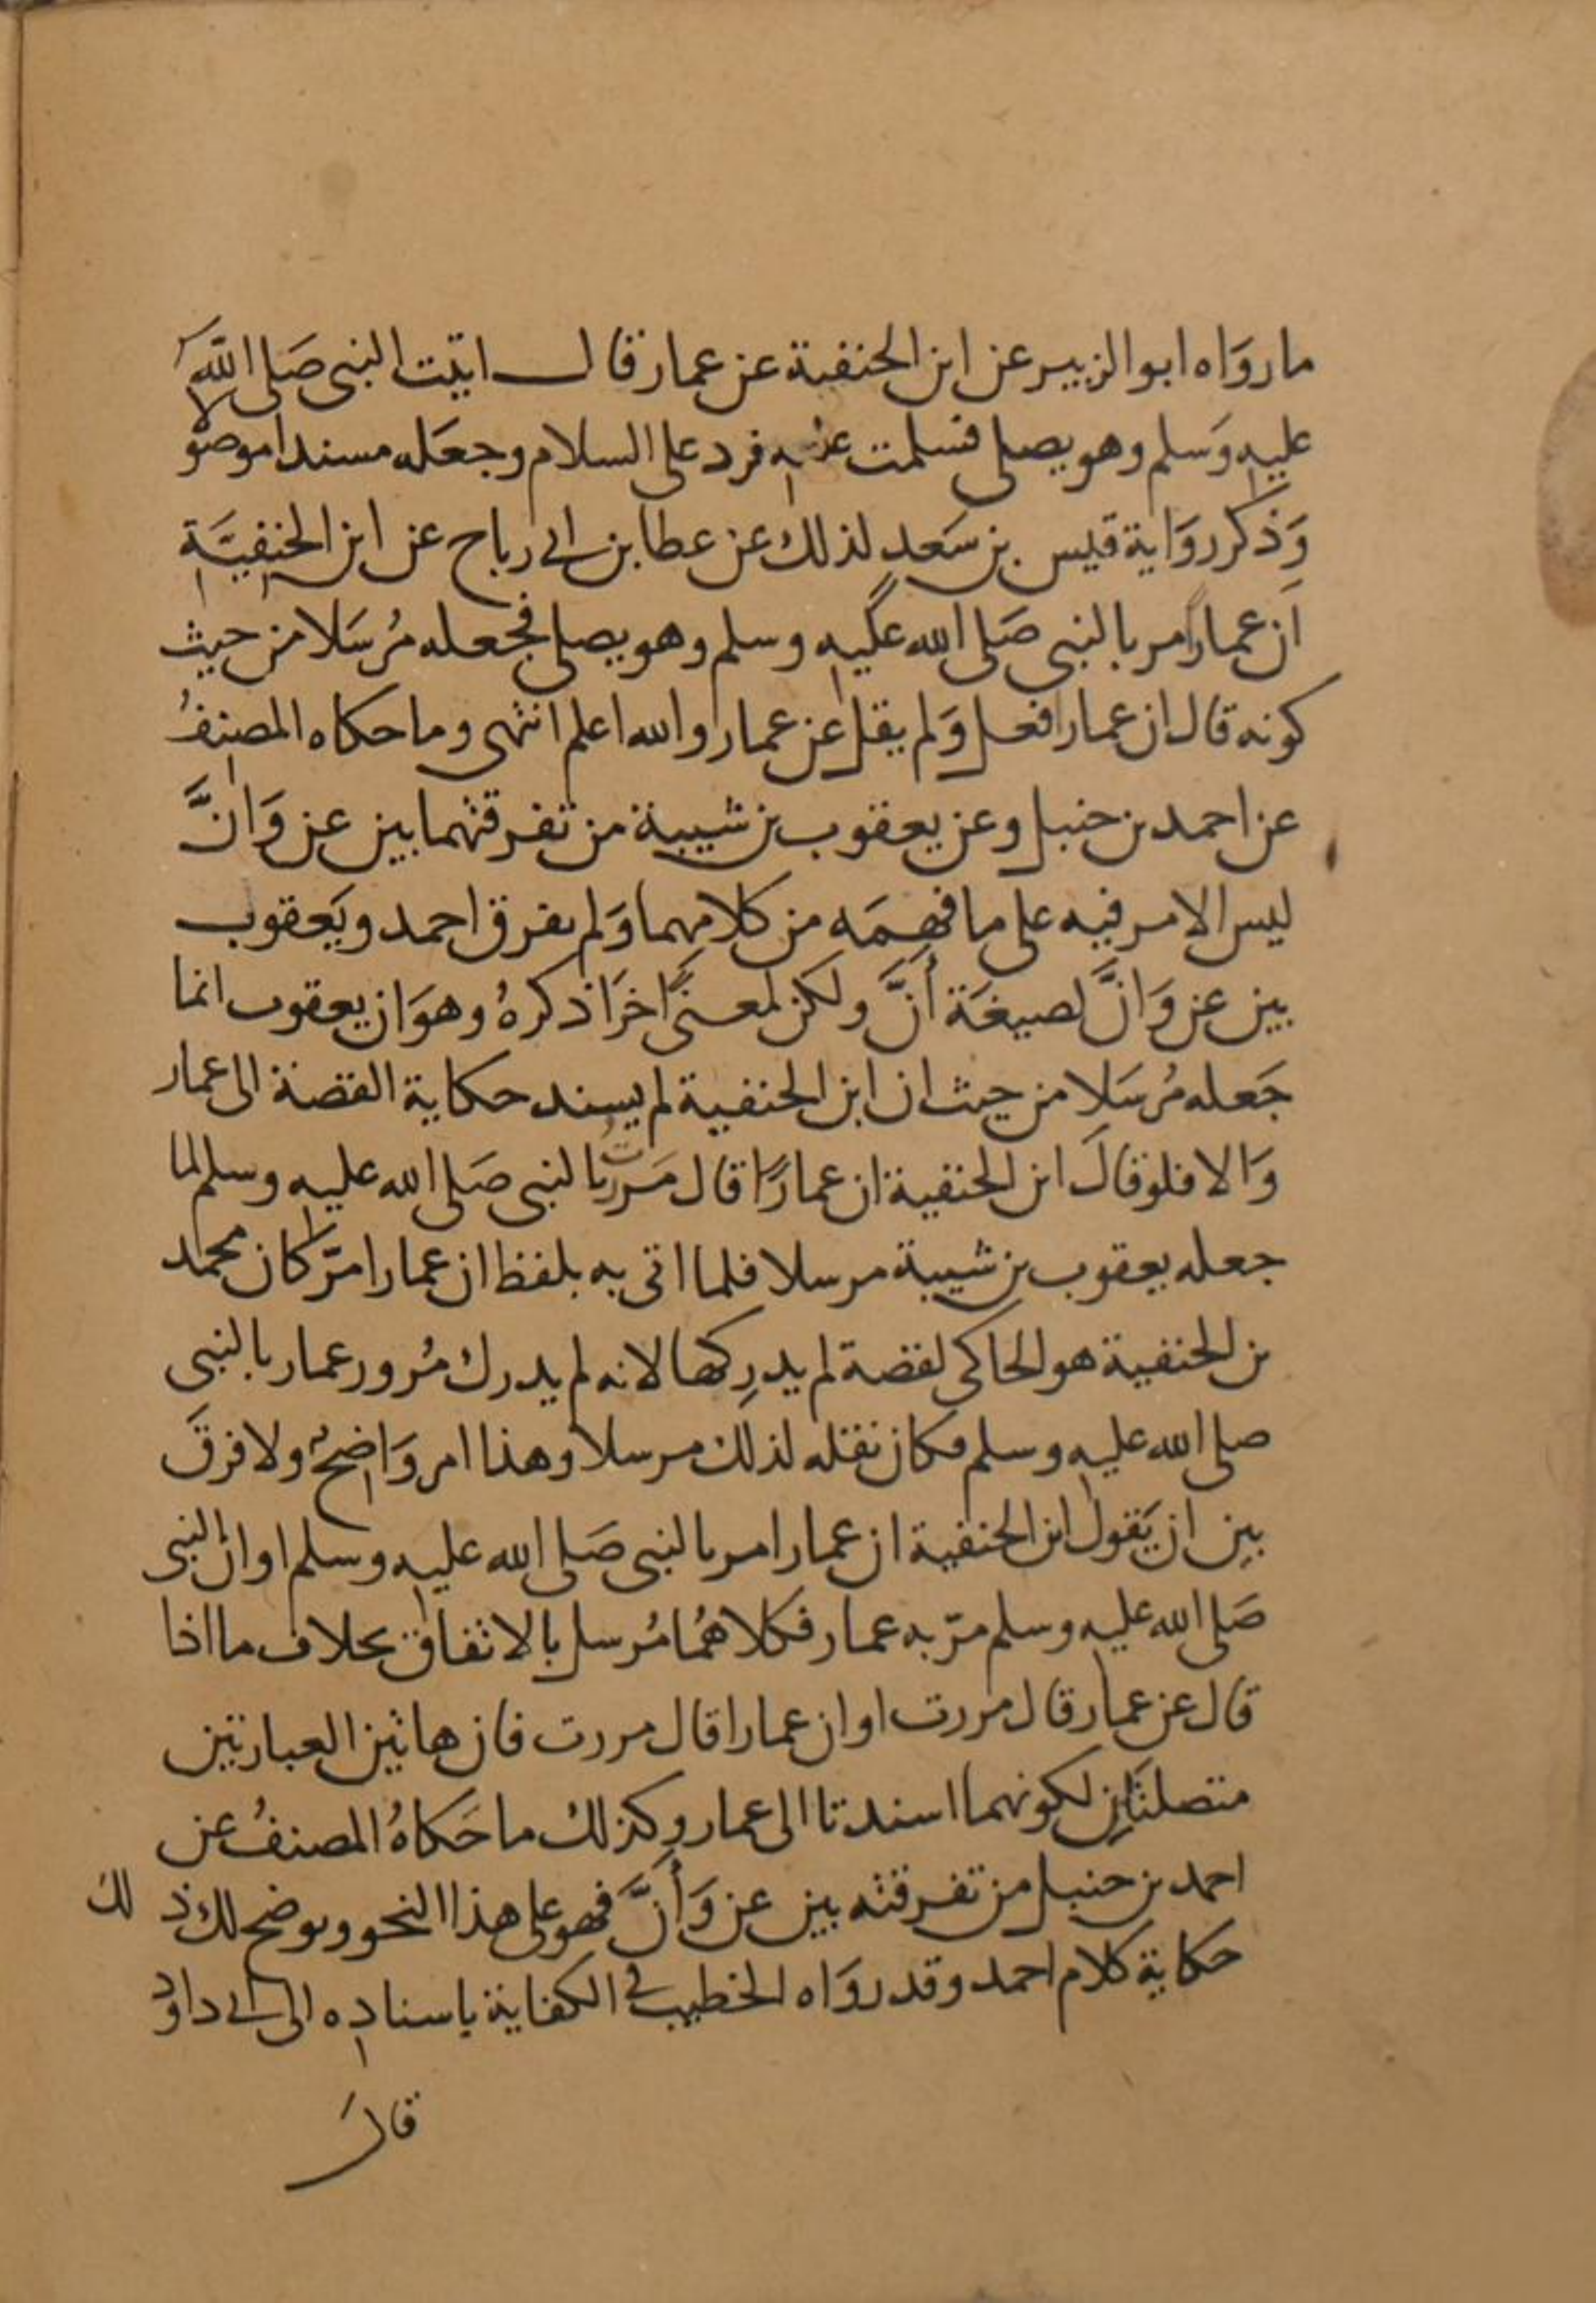 ما روَاه ابو الزبير عن ابن الحنفية عن عمار قال اتيت النبى صَلى اللّه
عليه وَسلم وهو يصلى فسلمت عليه فرد على السلام وجعَله مسندا موصولا
وَذكر روَاية قيس بن سَعد لذلك عن عطا بن ابى رباح عن ابن الحنفيَّة
ان عمارًا مر بالنبى صَلى الله عليه وسلم وهو يصلى فجعله مُرسَلا من حيث
كونه قال ان عمارا فعل وَلم يقل عن عمار والله اعلم انتهى وما حكاه المصنفُ
عن احمد بن حنبل وعن يعقوب بن شيبة من تفرقتهما بين عن وَانَّ
ليس الامر فيه على ما فهمَه من كلامهما وَلم يفرق احمد ويَعقوب
بين عن وَانَّ لصيغَة أنَّ ولكن لمعنًى اخرَ اذكرهُ وهوَ ان يعقوب انما
جَعله مُرسَلا من حيث ان ابن الحنفية لم يسند حكاية القصة الى عمار
وَالا فلو قالَ ابن الحنفية ان عمارًا قال مَررت بالنبى صَلى الله عليه وسلم لما
جعله يعقوب بن شيبة مرسلا فلما اتى به بلفظ ان عمارا مرّ كان محمد
بن الحنفية هو الحاكى لقصة لم يدرِكها لانه لم يدرك مُرور عمار بالنبى
صلى الله عليه وسلم فكان نقله لذلك مرسلا وهذا امر وَاضحٌ ولا فرقَ
بين ان يَقول ابن الحنفية ان عمارا مر بالنبى صَلى الله عليه وسلم او ان النبى
صَلى الله عليه وسلم مرّ به عمار فكلاهُما مُرسل بالاتفاق بخلاف ما اذا
قال عن عمار قال مررت او ان عمارا قال مررت فان هاتين العبارتين
متصلتان لكونهما اسندتا الى عمار وكذلك ما حَكاهُ المصنفُ عن
احمد بن حنبل من تفرقته بين عن وَأنَّ فهو على هذا النحو ويوضح لك ذلك
حكاية كلام احمد وقد روَاه الخطيب فى الكفاية باسناده الى ابى داود
قالَ